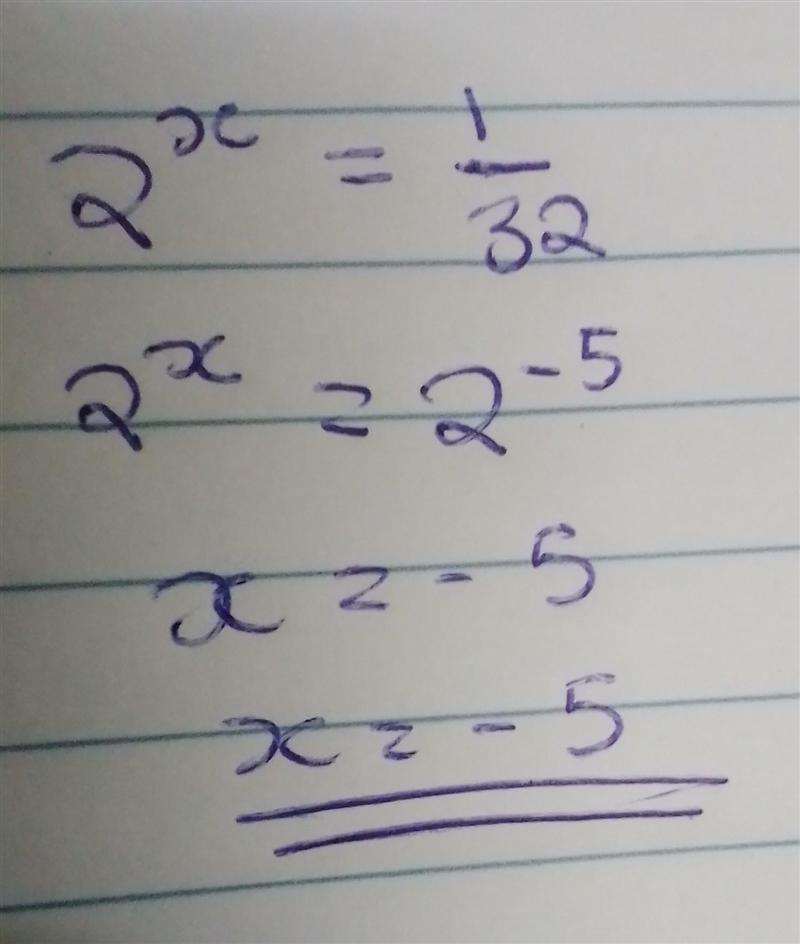 2^x = 1/32
2^x = 2^-5
x = -5
x = -5